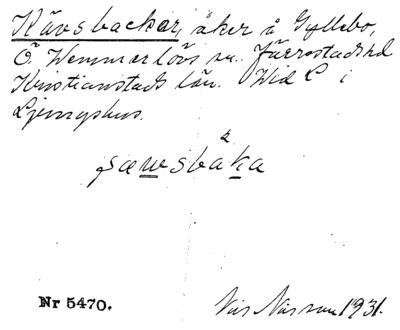 Kävsbackar, åker å Gyllebo,
Ö. Vemmerlövs sn. Järrestads hd
Kristianstads län. Vid L i
Ljungshus.
sbåka
Nr 5470.
Nils Nilsson 1931.